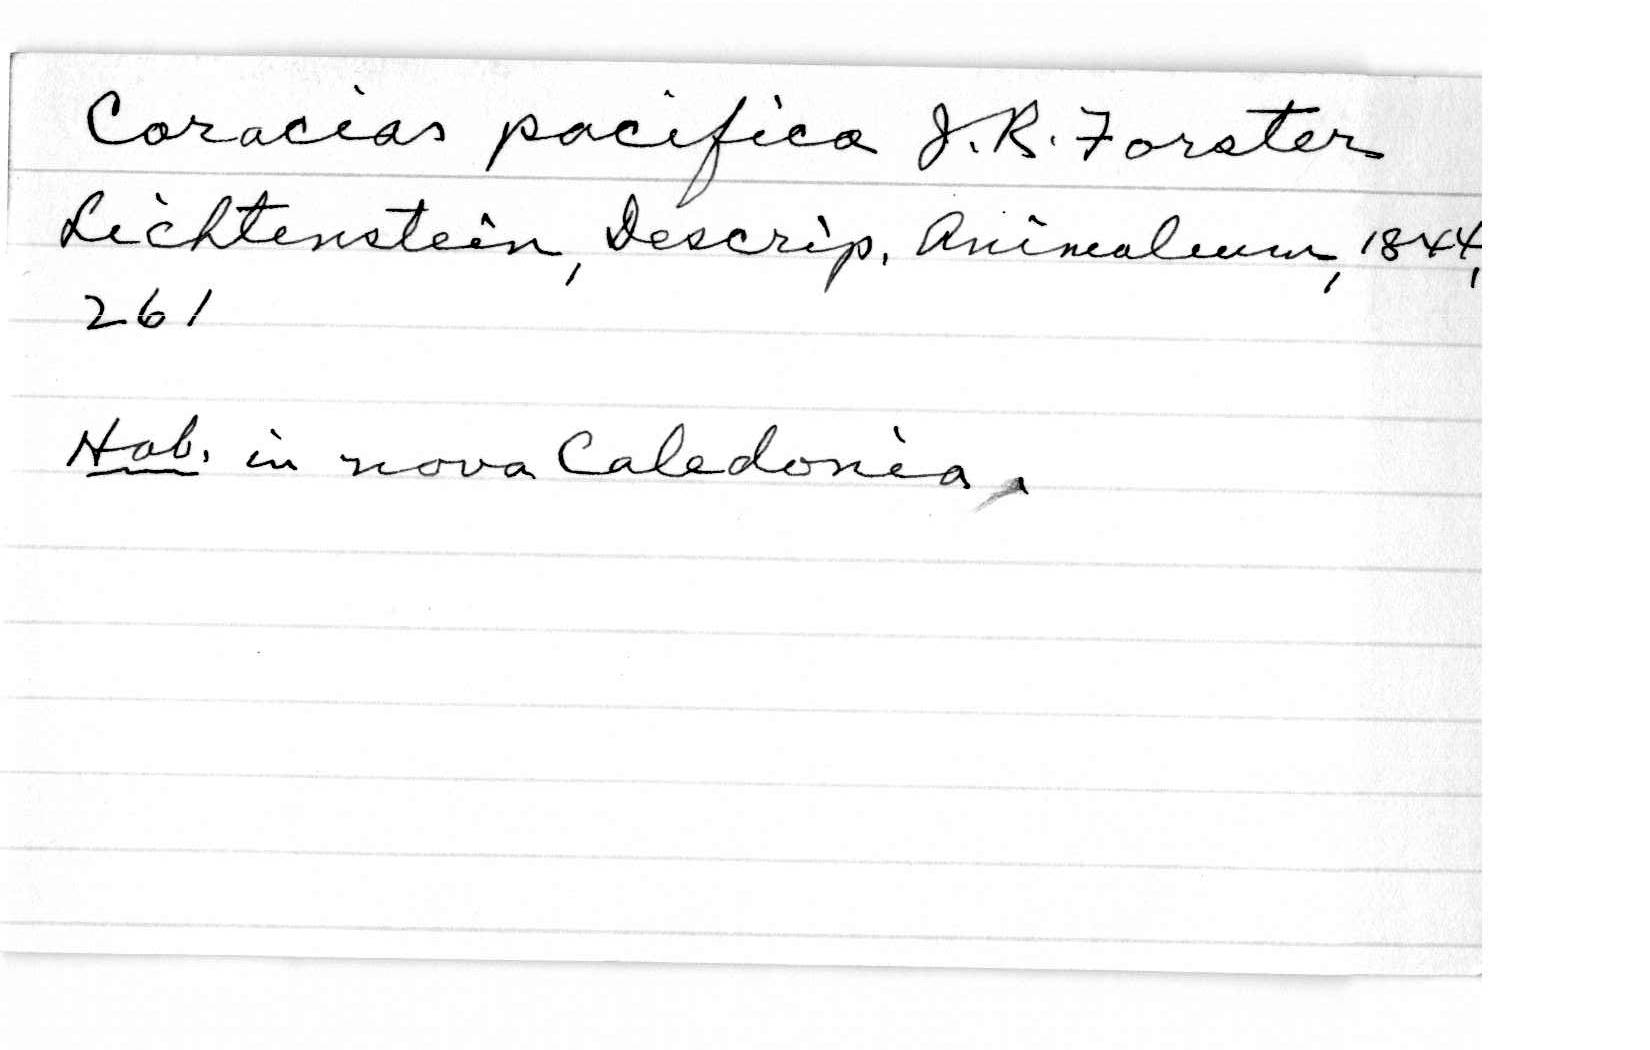 Coracias pacifica J.R. Forster
Lichtenstein, Descrip. Animalium, 1844,
261
Hab. in nova Caledonia.